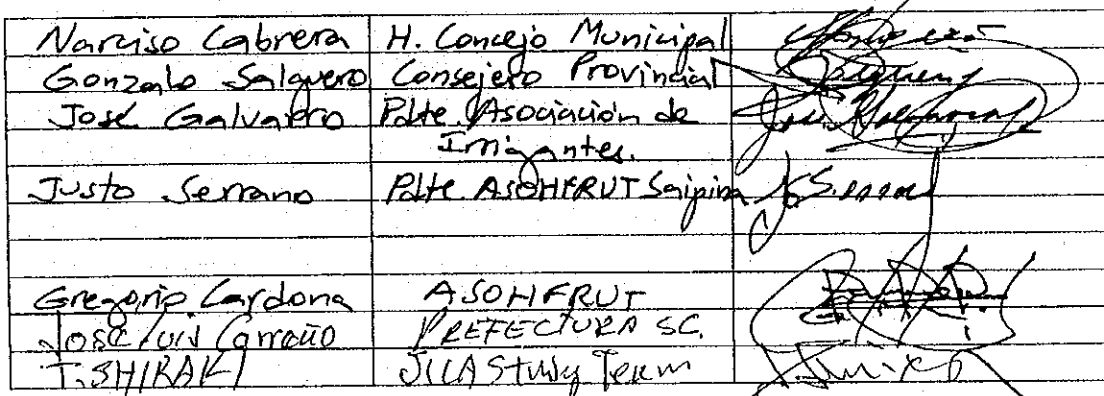 Narciso Cabrera H. Concejo Municipal
Gonzalo Salguero Consejero Provincial
José Galvarro Pdte. Asociación de
Irrigantes.
Justo Serrano Pdte. ASOHFRUT Saipina J. Serrano
Gregorio Cardona ASOHFRUT
José Luis Carreño PREFECTURA SC.
T. SHIRAKI JICA Study Team